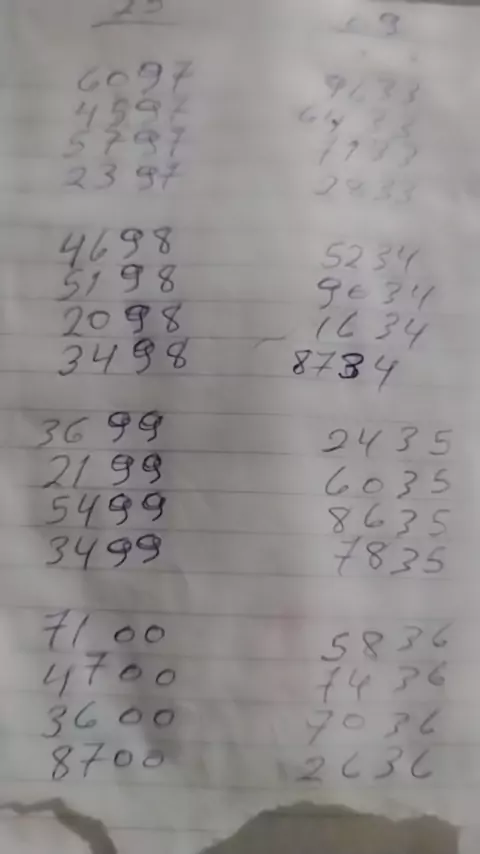 25 9
6097 9633
4597
5797 1133
2397 2833
4698 5234
5198 9634
2098 1634
3498 8734
3699 2435
2199 6035
5499 8635
3499 7835
7100 5836
4700 7436
3600 7036
8700 2636